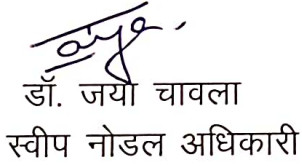 डॉ. जया चावला
स्वीप नोडल अधिकारी